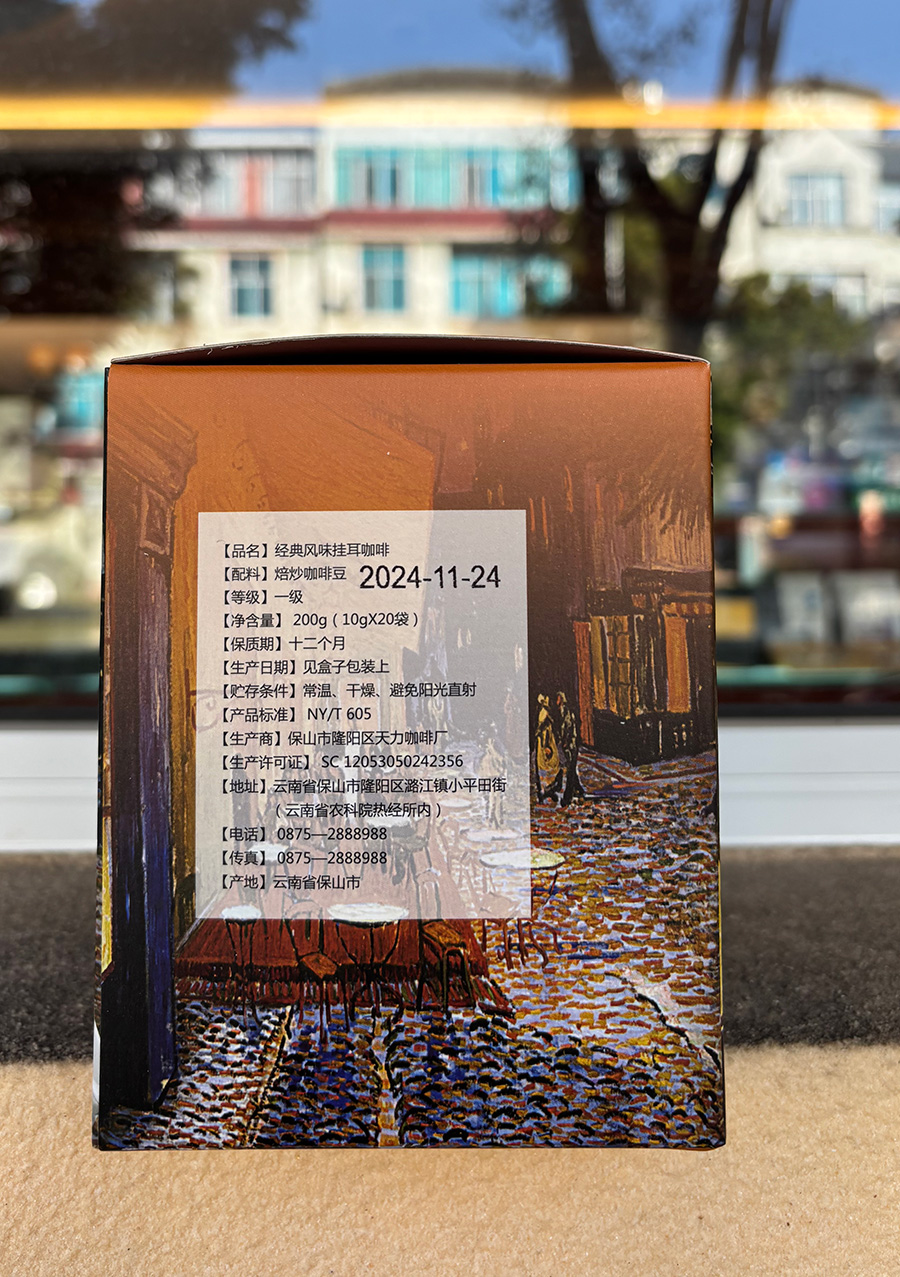 【品名】经典风味挂耳咖啡
【配料】焙炒咖啡豆 2024-11-24
【等级】一级
【净含量】 200g（10gX20袋）
【保质期】十二个月
【生产日期】见盒子包装上
【贮存条件】常温、干燥、避免阳光直射
【产品标准】 NY/T 605
【生产商】保山市隆阳区天力咖啡厂
【生产许可证】 SC 12053050242356
【地址】云南省保山市隆阳区潞江镇小平田街
（云南省农科院热经所内）
【电话】 0875—2888988
【传真】 0875—2888988
【产地】云南省保山市